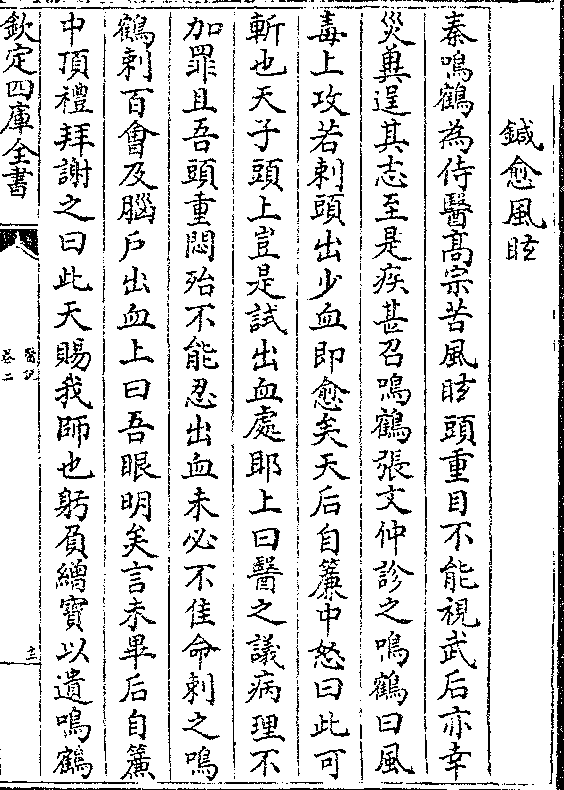 鍼愈風眩
秦鳴鶴為侍醫高宗苦風眩頭重目不能視武后亦幸
災異逞其志至是疾甚召鳴鶴張文仲診之鳴鶴曰風
毒上攻若刺頭出少血即愈矣天后自簾中怒曰此可
斬也天子頭上豈是試出血處耶上曰醫之議病理不
加罪且吾頭重悶殆不能忍出血未必不佳命刺之鳴
鶴刺百會及腦戶出血上曰吾眼明矣言未畢后自簾
中頂禮拜謝之曰此天賜我師也躬負繒寶以遺鳴鶴
欽定四庫全書
醫説
卷二